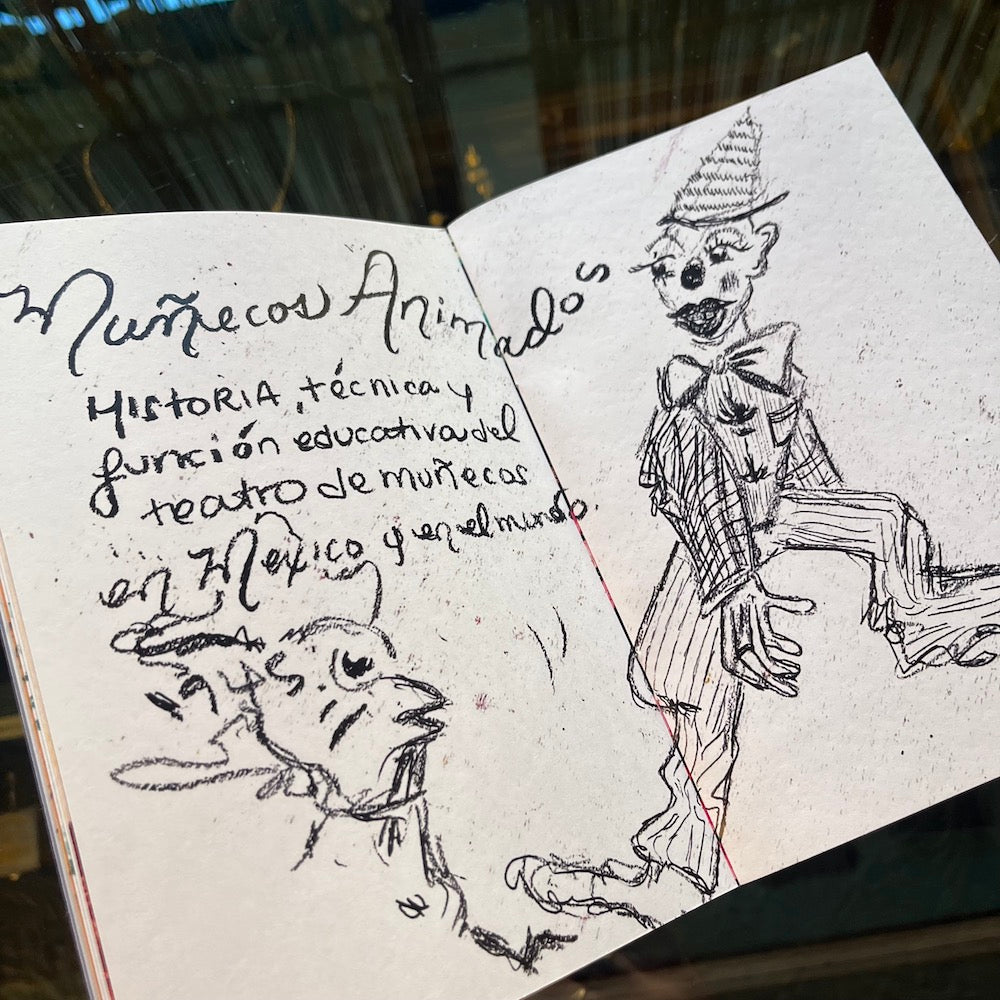 Muñecos Animados
HISTORIA, técnica y
función educativa del
teatro de muñecos
en México y en el mundo.
1945